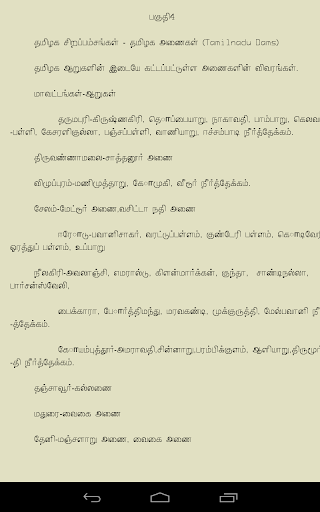 பகுதி4
தமிழக சிறப்பம்சங்கள் - தமிழக அணைகள் (Tamilnadu Dams)
தமிழக ஆறுகளின் இடையே கட்டப்பட்டுள்ள அணைகளின் விவரங்கள்.
மாவட்டங்கள்-ஆறுகள்
தருமபுரி-கிருஷ்ணகிரி, தொப்பையாறு, நாகாவதி, பாம்பாறு, கெலவ
-பள்ளி, கேசரளிகுல்லா, பஞ்சப்பள்ளி, வாணியாறு, ஈச்சம்பாடி நீர்த்தேக்கம்.
திருவண்ணாமலை-சாத்தனூர் அணை
விழுப்புரம்-மணிமுத்தாறு, கோமுகி, வீடூர் நீர்த்தேக்கம்.
சேலம்-மேட்டூர் அணை,வசிட்டா நதி அணை
ஈரோடு-பவானிசாகர், வரட்டுப்பள்ளம், குண்டேரி பள்ளம், கொடிவேர்
ஓரத்துப் பள்ளம், உப்பாறு
நீலகிரி-அவலாஞ்சி, எமரால்டு, கிளன்மார்க்கன், குந்தா, சாண்டிநல்லா,
பார்சன்ஸ்வேலி,
பைக்காரா, போர்த்திமந்து, மரவகண்டி, முக்குருத்தி, மேல்பவானி நீ
-த்தேக்கம்.
கோயம்புத்தூர்-அமராவதி,சின்னாறு,பரம்பிக்குளம், ஆளியாறு,திருமூர்
-தி நீர்த்தேக்கம்.
தஞ்சாவூர்-கல்லணை
மதுரை-வைகை அணை
தேனி-மஞ்சளாறு அணை, வைகை அணை